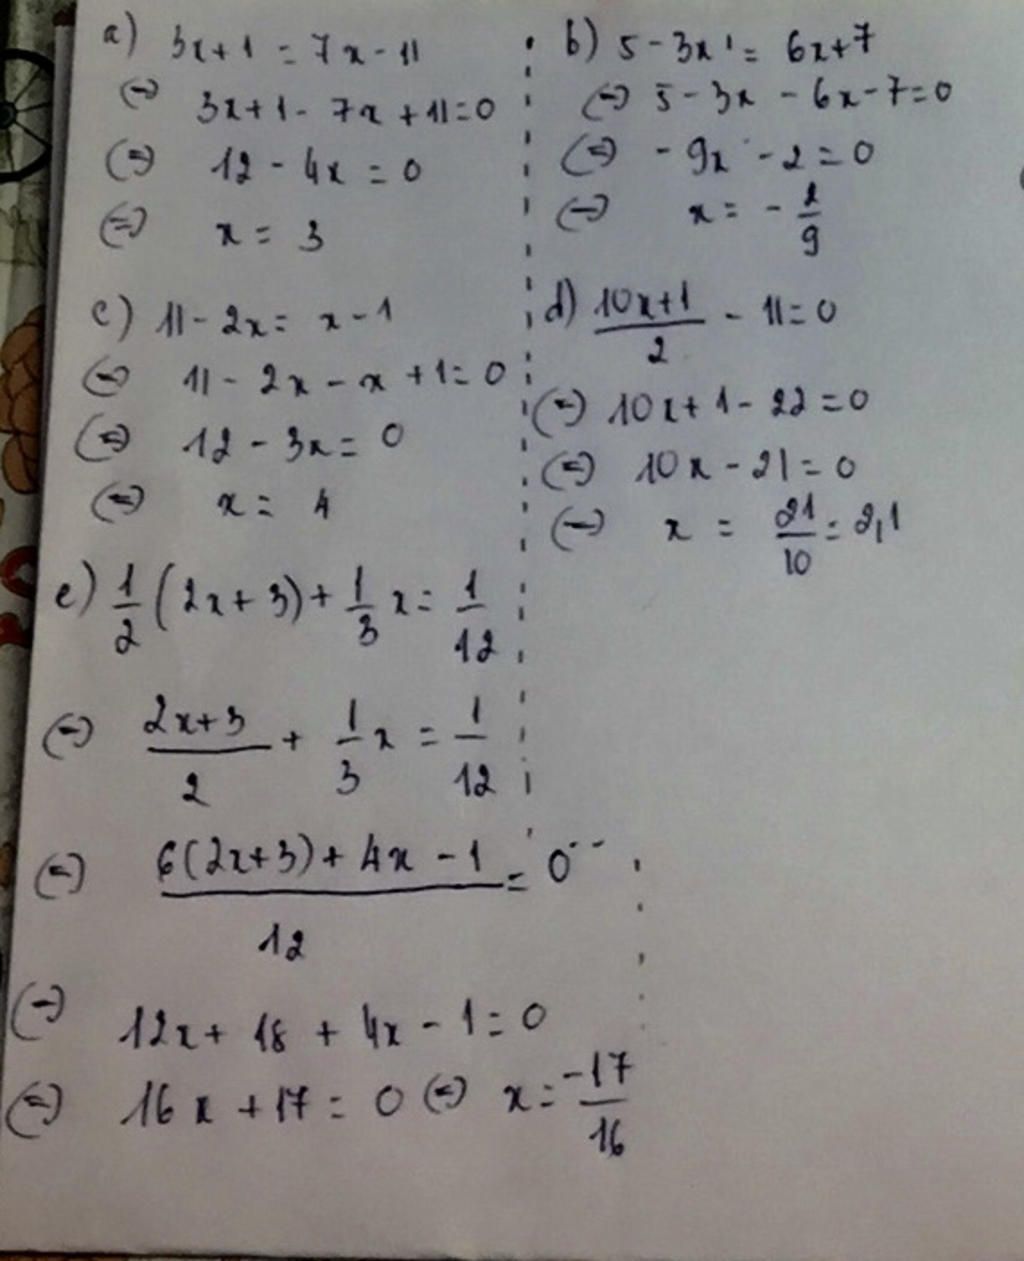 a) 3x+1 = 7x-11
(=) 3x+1-7x+11=0
(=) 12-4x=0
(=) x = 3
b) 5-3x = 6x+7
(=) 5-3x-6x-7=0
(=) -9x-2=0
(=) x = -2/9
c) 11-2x = x-1
(=) 11-2x-x+1=0
(=) 12-3x=0
(=) x = 4
d) (10x+1)/2 - 11=0
(=) 10x+1-22=0
(=) 10x-21=0
(=) x = 21/10 = 2,1
e) 1/2 (2x+3) + 1/3 x = 1/12
(=) (2x+3)/2 + 1/3 x = 1/12
(=) (6(2x+3)+4x-1)/12 = 0
(=) 12x+18+4x-1=0
(=) 16x+17=0 (=) x = -17/16